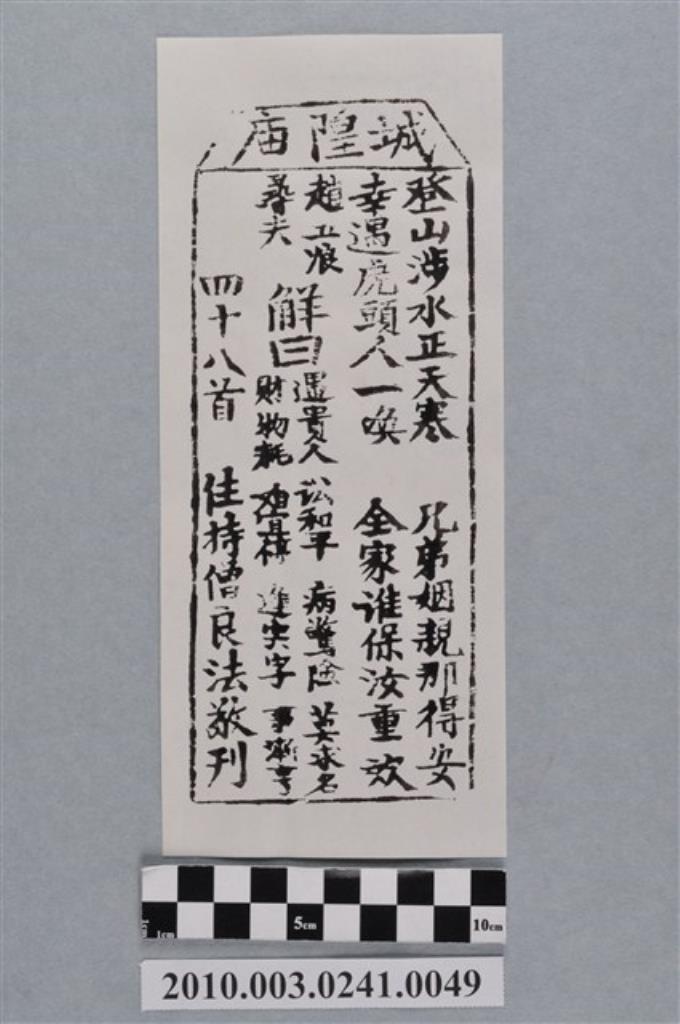 城隍庙
登山涉水正天寒 兄弟姻親那得安
幸遇虎頭人一喚 全家谁保汝重欢
趙五娘
尋夫
解曰
遇貴人 訟和平 病驚险 莫求名
財物耗 逢寅字 事漸亨
四十八首 住持僧良法敬刊
5cm
10cm
1cm
2010.003.0241.0049